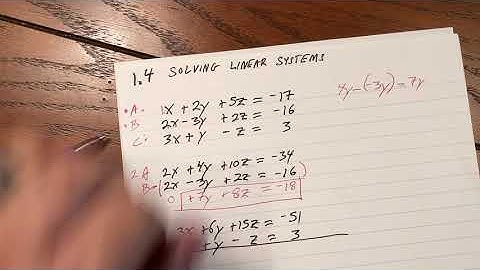 1.4 SOLVING LINEAR SYSTEMS
•A• 1x + 2y + 5z = -17
•B• 2x - 3y + 2z = -16
C• 3x + y - z = 3
4y - (-3y) = 7y
2A 2x + 4y + 10z = -34
B -(2x - 3y + 2z = -16)
0 +7y +8z = -18
3x + 6y + 15z = -51
+ y - z = 3